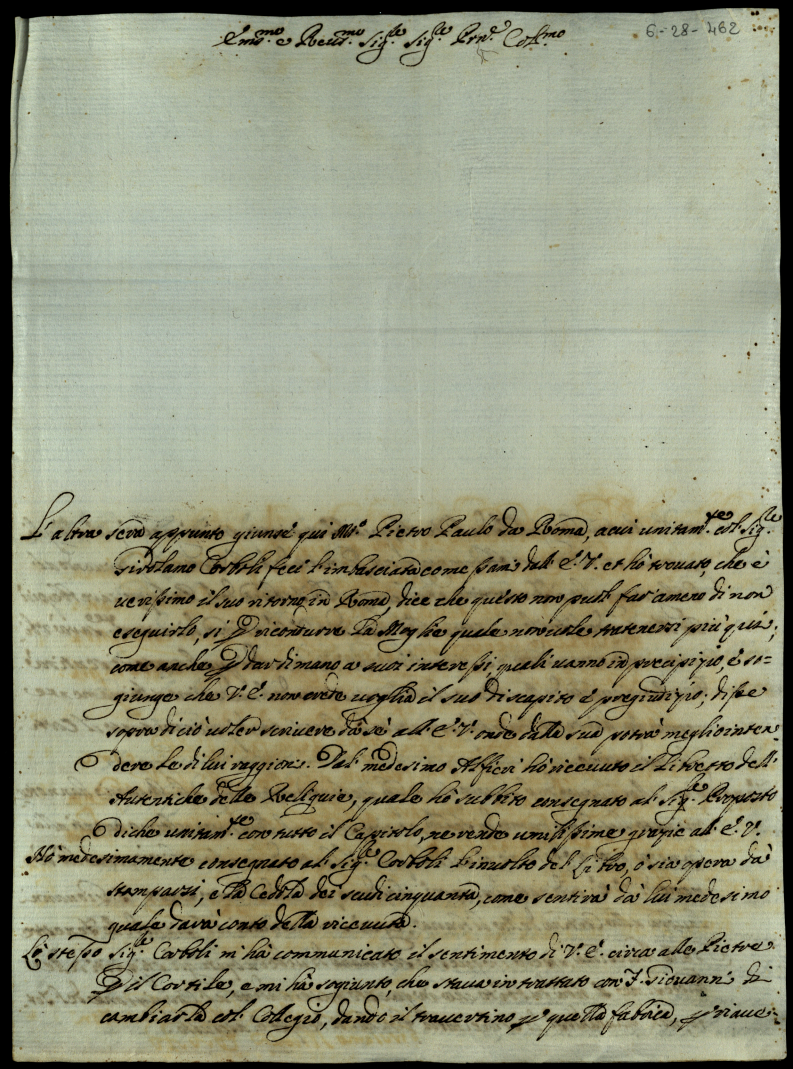 6-28-462
Em.mo e Reu.mo Sig.re Sig.re Prñe Col.mo
L'altra sera appunto giunse qui M.º Pietro Paulo da Roma, a cui unitam.te col Sig.re
Girolamo Corboli feci l'imbasciata come parui dall'E.V. et hò trouato, che è
uerissimo il suo ritorno in Roma, dice che questo non può far'ameno di non
eseguirlo, si p ricondurre la Moglie quale non uole tratenersi più quà,
come anche p dar di mano a suoi interessi, quali uanno in precipizio, e so-
giunge che V.E. non crede uoglia il suo discapito e pregiudizio; disse
sopra di ciò uoler scriuere da sè all'E.V. onde dalla sua potrà meglio inten-
dere le di lui raggioni. Dal medesimo Alfieri hò riceuuto il Libretto dell'
Autentiche delle Reliquie, quale hò subbito consegnato al Sig.re Proposto
di che unitam.te con tutto il Capitolo, ne rende umilissime grazie all'E.V.
Hò medesimamente consegnato al Sig.re Corboli l'inuolto del Libro, ò sia opera da
stamparsi, e la Cedola dei scudi cinquanta, come sentirà da lui medesimo
quale darà conto della riceuuta.
Lo stesso Sig.re Corboli m'hà communicato il sentimento di V.E. circa alle Pietre
p il Cortile, e mi hà sogiunto, che staua in trattato con F. Giovanni di
cambiarla col Collegio, dando il trauertino p quella fabrica, p riaue-